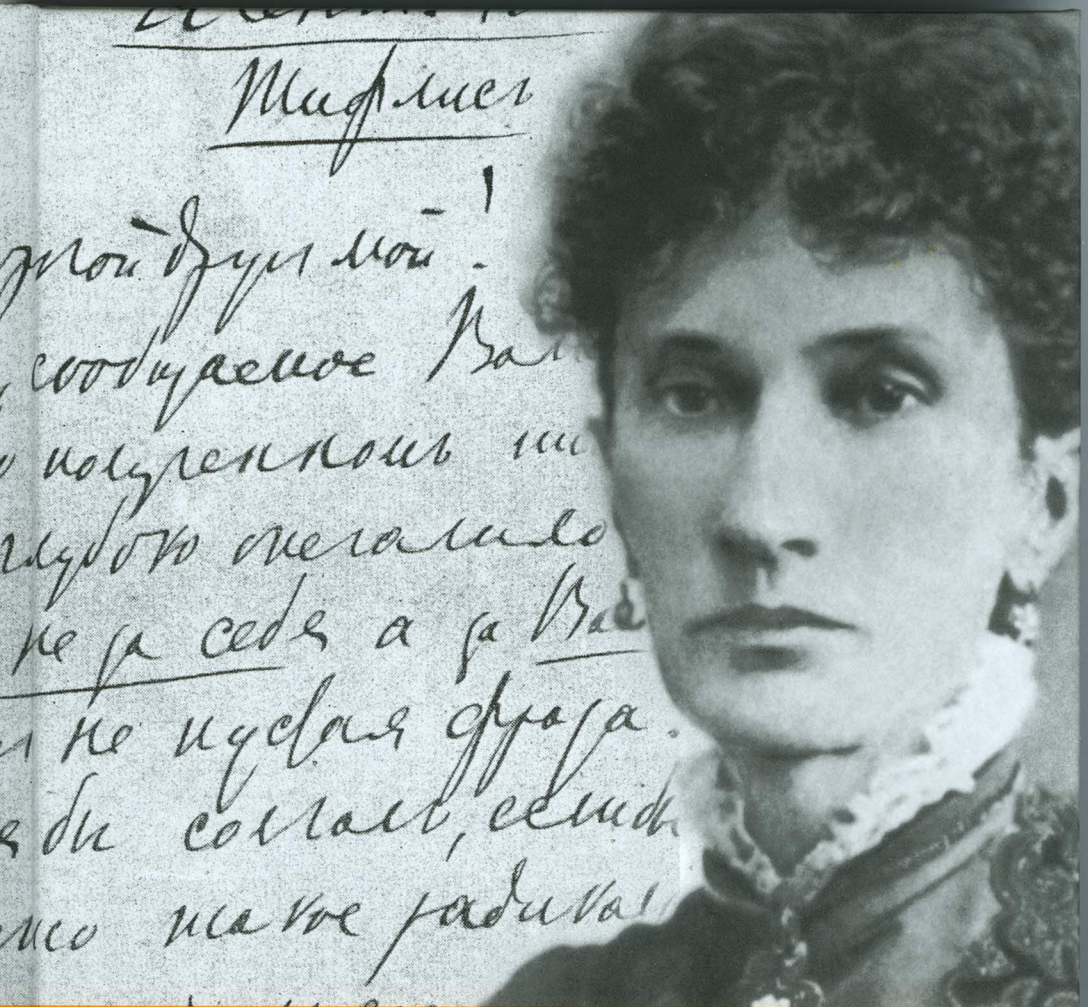 Тифлисъ
рогой другъ мой!
сообщаемое Вам
полученномъ пи
глубоко опечалило
не за себя а за Ва
не пустая фраза.
я бы солгалъ, еслибъ
что такое радикаль